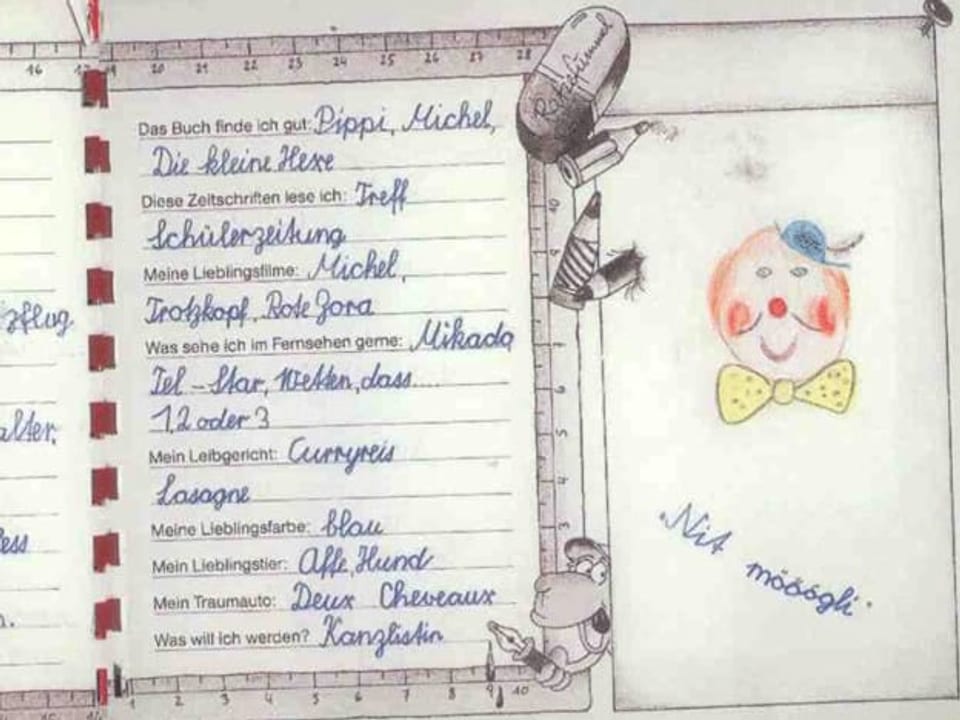 16 17 19 20 21 22 23 24 25 26 27 28
Radiergummel
Das Buch finde ich gut: Pippi, Michel,
Die kleine Hexe
Diese Zeitschriften lese ich: Treff
Schülerzeitung
Meine Lieblingsfilme: Michel,
Trotzkopf, Rote Zora
Was sehe ich im Fernsehen gerne: Mikado
Tel-Star, Wetten, dass....
1,2 oder 3
Mein Leibgericht: Curryreis
Lasagne
Meine Lieblingsfarbe: blau
Mein Lieblingstier: Affe, Hund
Mein Traumauto: Deux Cheveaux
Was will ich werden? Kanzlistin
1 2 3 4 5 6 7 8 9 10
10 9 7 6 5 4 3
Nit
möööögli